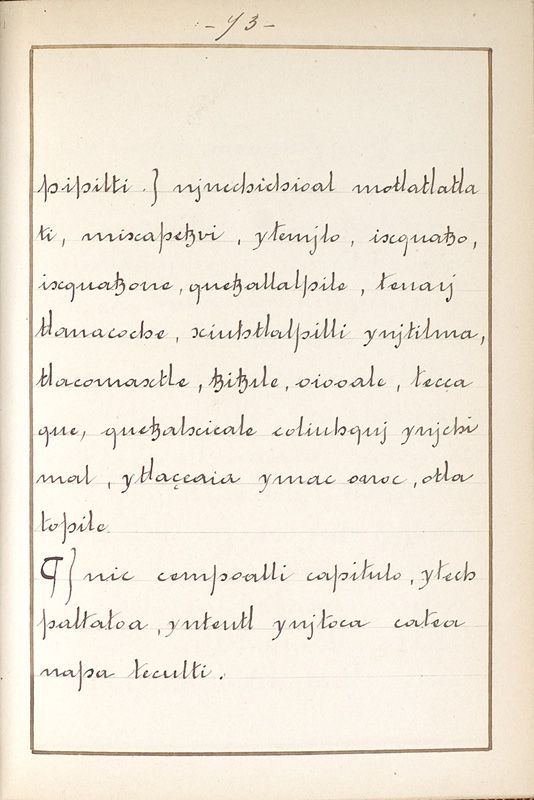 - 73 -
pipilti .} njnechichioal motlatlatla
ti, mixcapetzvi, ytemjlo, ixquatzo,
ixquatzone, quetzallalpile, tenaxj
tlanacoche, xiuhtlalpilli ynjtilma,
tlacomaxtle, tzitzile, oiooale, tecca
que, quetzalxicale coliuhquj ynjchi
mal, ytlaççaia ymac onoc, otla
topile.
¶} nic cempoalli capitulo, ytech
paltatoa, ynteutl ynjtoca catea
napa teculti.